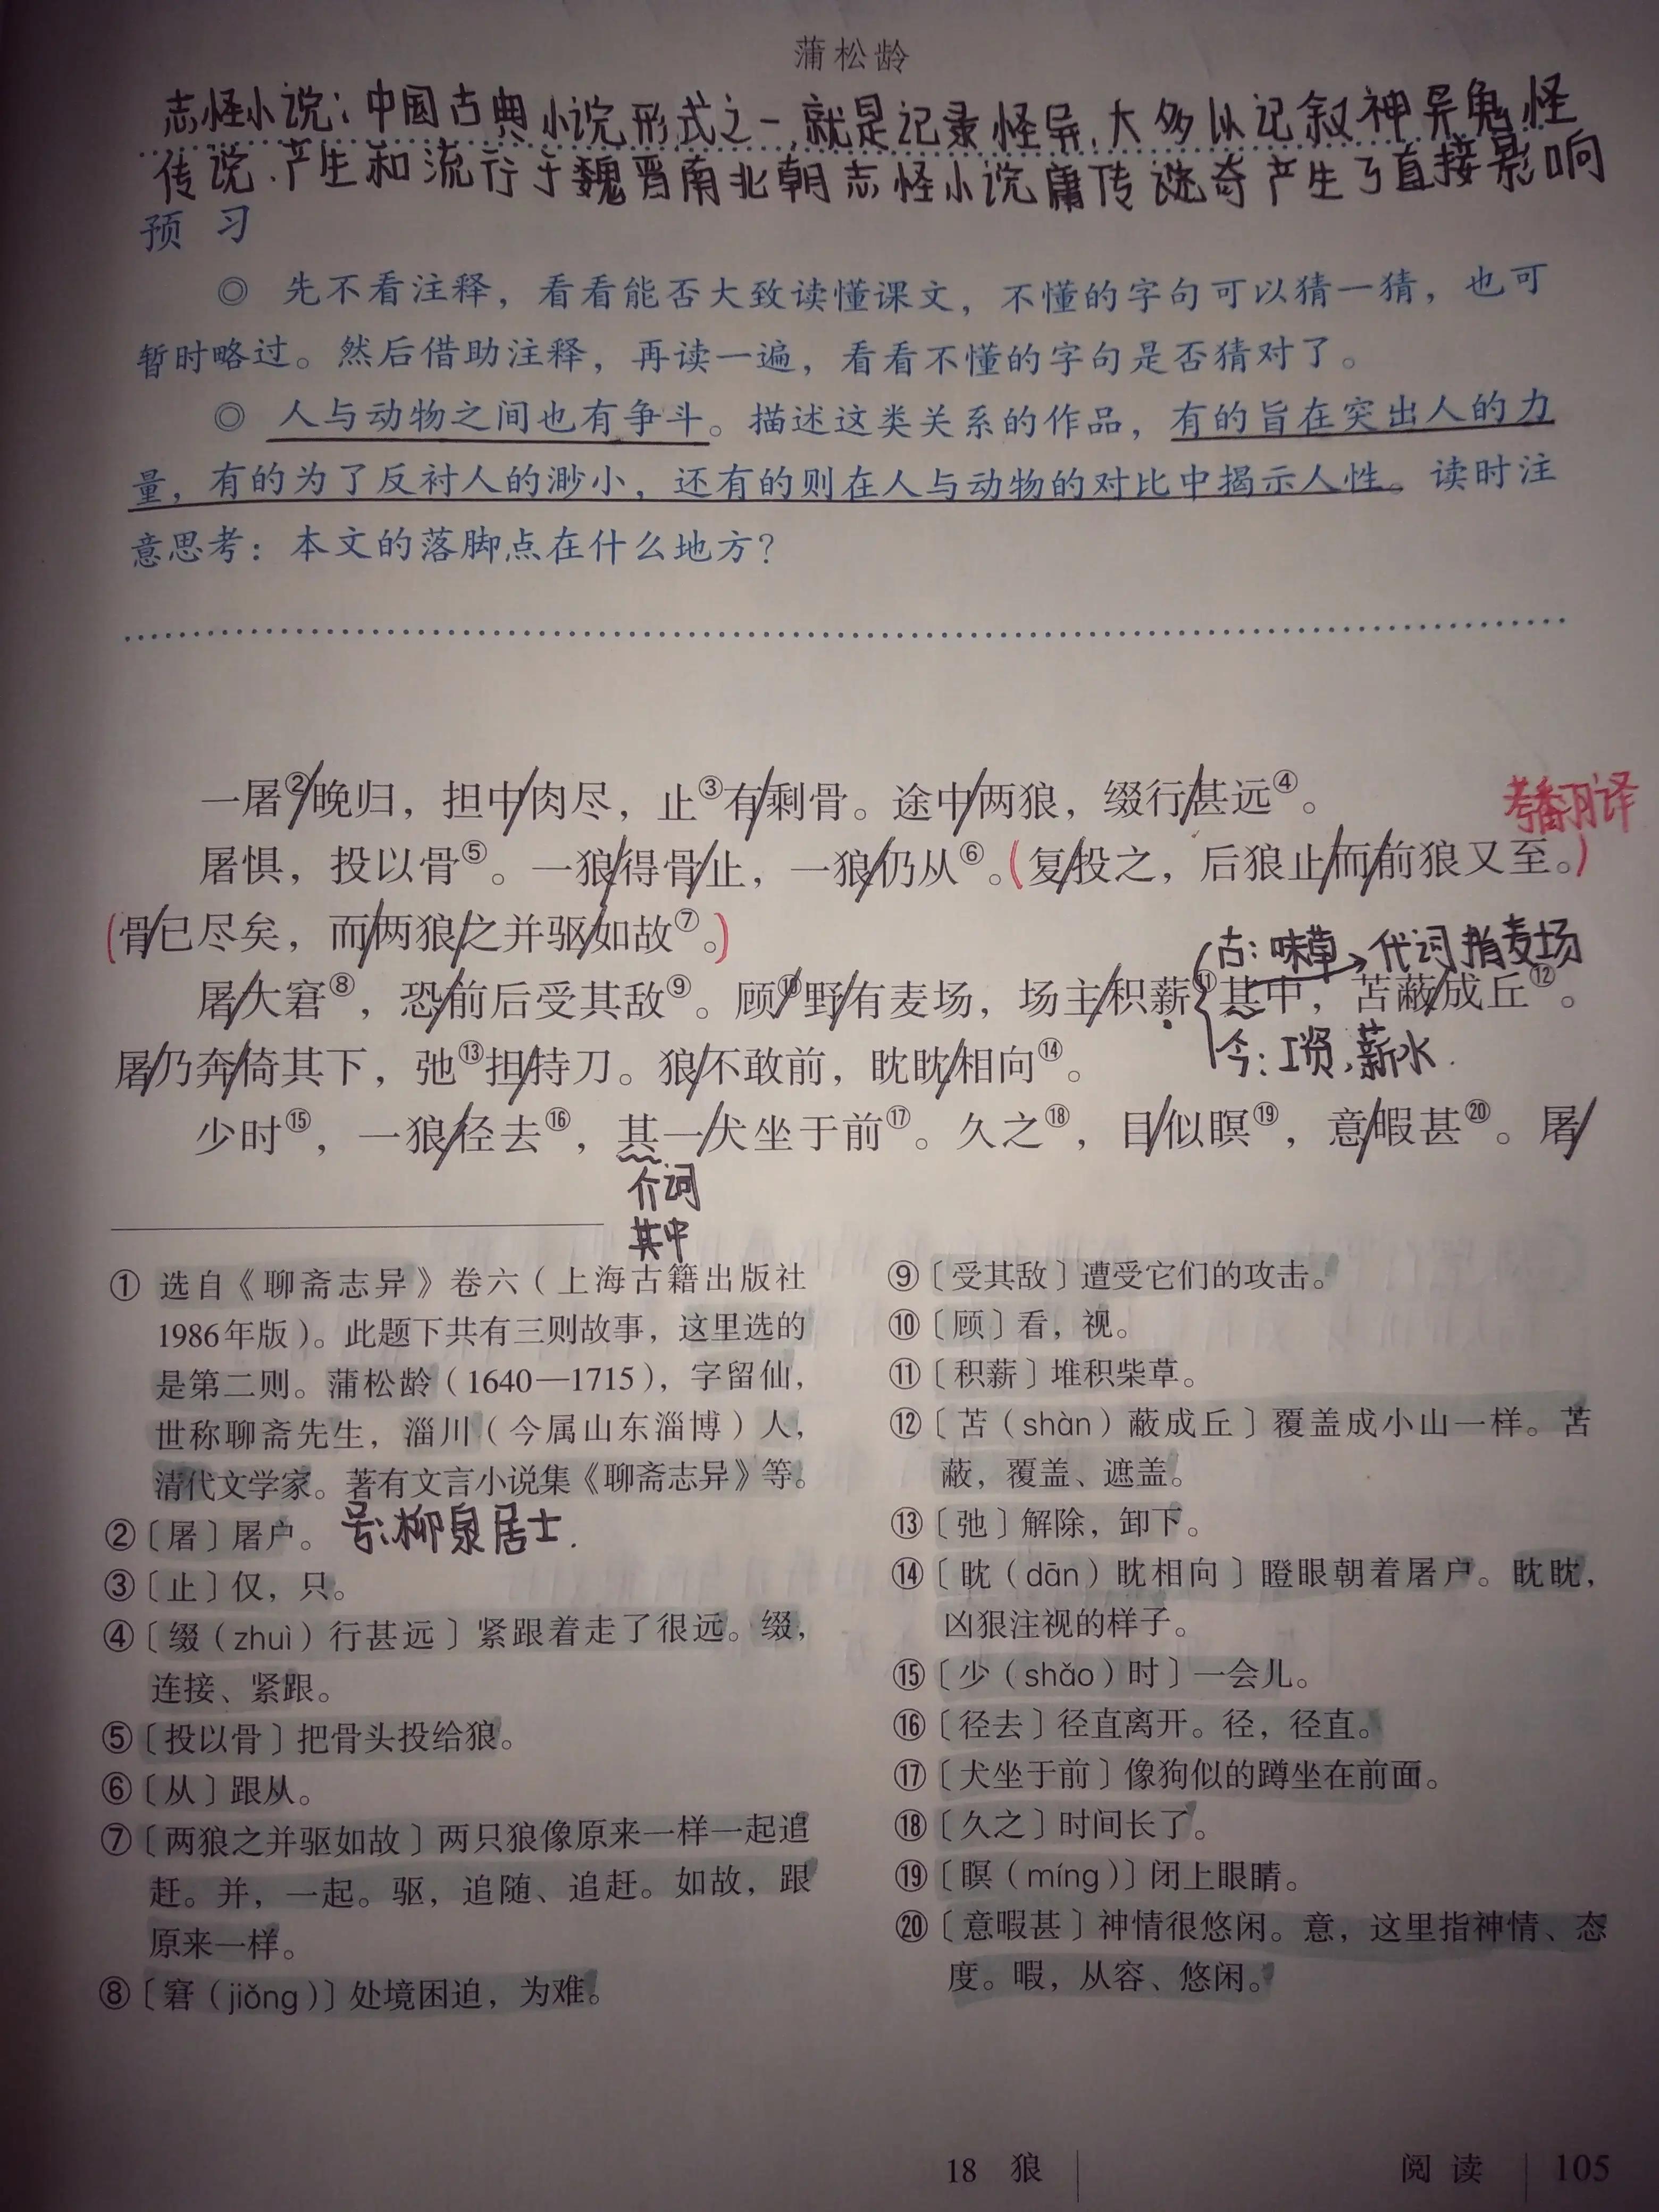 蒲松龄
志怪小说：中国古典小说形式之一，就是记录怪异，大多以记叙神异鬼怪
传说.产生和流行于魏晋南北朝志怪小说庸传奇产生了直接影响
预 习
◎ 先不看注释，看看能否大致读懂课文，不懂的字句可以猜一猜，也可
暂时略过。然后借助注释，再读一遍，看看不懂的字句是否猜对了。
◎ 人与动物之间也有争斗。描述这类关系的作品，有的旨在突出人的力
量，有的为了反衬人的渺小，还有的则在人与动物的对比中揭示人性。读时注
意思考：本文的落脚点在什么地方？
一屠②/晚归，担中/肉尽，止③有/剩骨。途中/两狼，缀行/甚远④。
考翻译
屠惧，投以骨⑤。一狼/得骨/止，一狼/仍从⑥。(复/投之，后狼止/而/前狼又至。)
(骨/已尽矣，而/两狼/之并驱/如故⑦。)
古：味草 → 代词 指麦场
屠/大窘⑧，恐/前后受其敌⑨。顾⑩/野/有麦场，场主/积薪⑪其中，苫蔽/成丘⑫。
今：工资，薪水.
屠/乃奔/倚其下，弛⑬担/持刀。狼/不敢前，眈眈/相向⑭。
少时⑮，一狼/径去⑯，其一/犬坐于前⑰。久之⑱，目/似瞑⑲，意/暇甚⑳。屠/
介词
其中
① 选自《聊斋志异》卷六（上海古籍出版社
1986年版）。此题下共有三则故事，这里选的
是第二则。蒲松龄（1640—1715），字留仙，
世称聊斋先生，淄川（今属山东淄博）人，
清代文学家。著有文言小说集《聊斋志异》等。
②〔屠〕屠户。 号：柳泉居士.
③〔止〕仅，只。
④〔缀（zhuì）行甚远〕紧跟着走了很远。缀，
连接、紧跟。
⑤〔投以骨〕把骨头投给狼。
⑥〔从〕跟从。
⑦〔两狼之并驱如故〕两只狼像原来一样一起追
赶。并，一起。驱，追随、追赶。如故，跟
原来一样。
⑧〔窘（jiǒng）〕处境困迫，为难。
⑨〔受其敌〕遭受它们的攻击。
⑩〔顾〕看，视。
⑪〔积薪〕堆积柴草。
⑫〔苫（shàn）蔽成丘〕覆盖成小山一样。苫
蔽，覆盖、遮盖。
⑬〔弛〕解除，卸下。
⑭〔眈（dān）眈相向〕瞪眼朝着屠户。眈眈，
凶狠注视的样子。
⑮〔少（shǎo）时〕一会儿。
⑯〔径去〕径直离开。径，径直。
⑰〔犬坐于前〕像狗似的蹲坐在前面。
⑱〔久之〕时间长了。
⑲〔瞑（míng）〕闭上眼睛。
⑳〔意暇甚〕神情很悠闲。意，这里指神情、态
度。暇，从容、悠闲。
18 狼 阅读 105